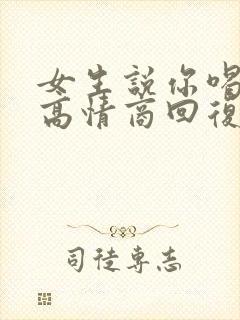 女生説你喝
高情商回復
司徒専志